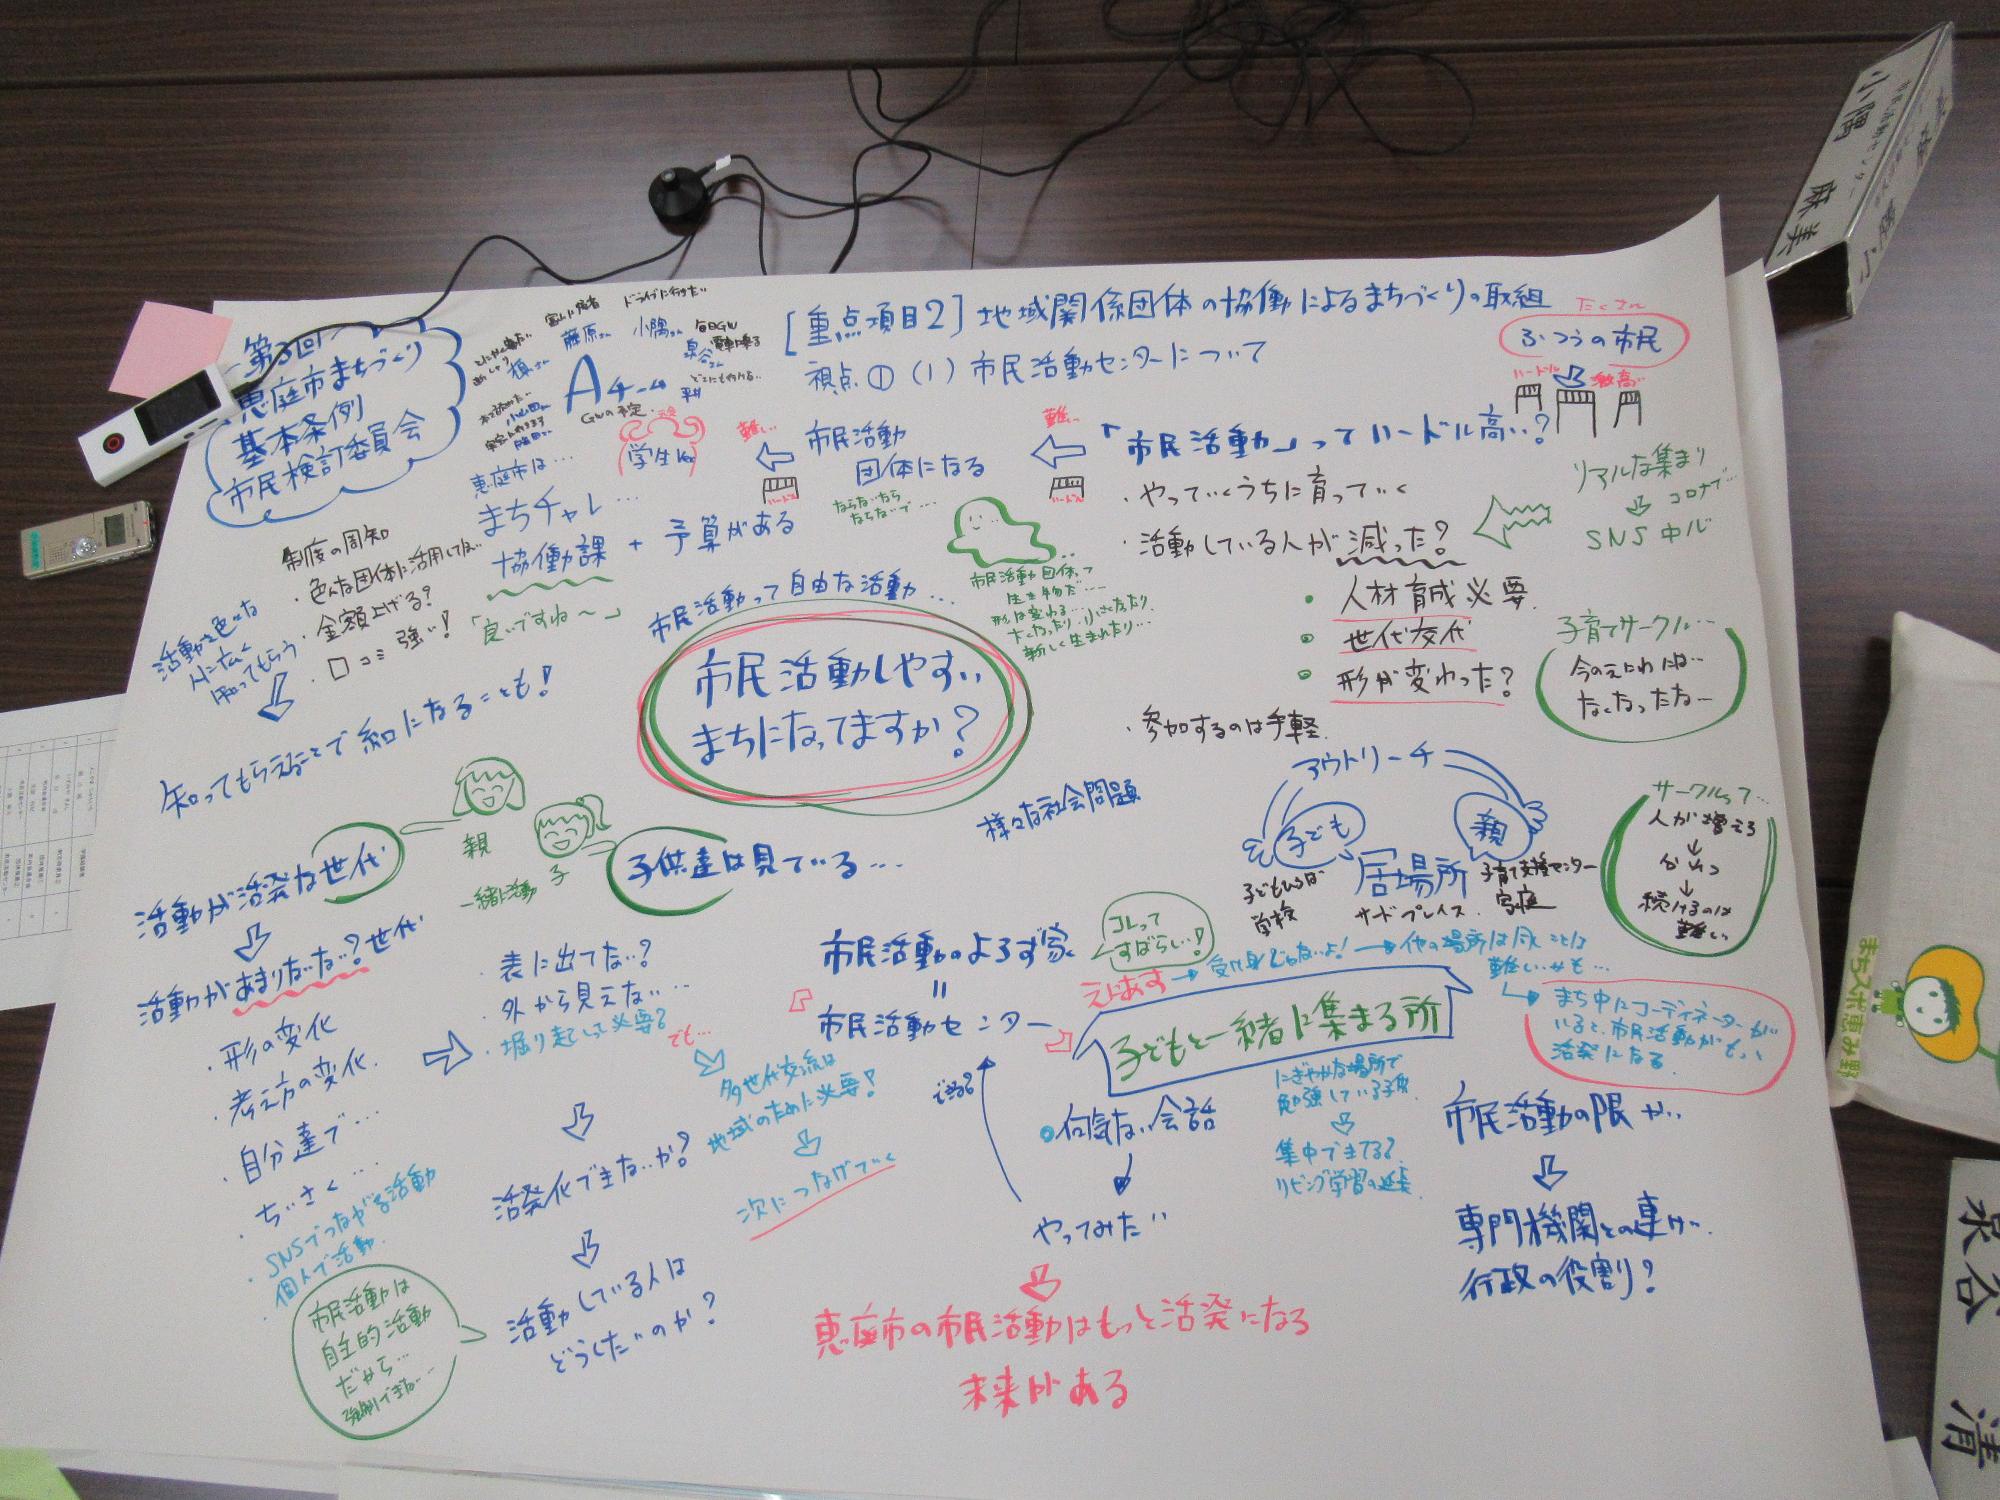 第3回
恵庭市まちづくり
基本条例
市民検討委員会
ドライブに行きたい
藤原さん
小隅さん
Aチーム
GWの予定
[重点項目2] 地域関係団体の協働によるまちづくりの取組
視点① (1) 市民活動センターについて
たくさん
ふつうの市民
ハードル
「市民活動」ってハードル高い?
難しい
ハードル
市民活動
団体になる
ならないなら
ならないで…
難しい
ハードル
学生ver
恵庭市は…
まちチャレ…
協働課 + 予算がある
「良いですね〜」
制度の周知
・色んな団体に活用してほしい
・金額上げる?
・口コミ 強い!
活動を色々な
人に広く
知ってもらう
知ってもらえることで糸口になることも!
・やっていくうちに育っていく
・活動している人が減った?
リアルな集まり
コロナで…
SNS中心
人材育成必要
世代交代
形が変わった?
子育てサークル…
今のえにわには…
なくなったな…
市民活動団体って
生き物だ…
形は変わる…
大きくなったり、小さくなったり
新しく生まれたり…
市民活動って自由な活動…
市民活動しやすい
まちになってますか?
・参加するのは手軽
アウトリーチ
子ども
親
居場所
サードプレイス
子どもひろば
学校
子育て支援センター
家庭
サークルって…
人が増える
かれつ
続けるのは
難しい
様々な社会問題
親
子
一緒に活動
子供達は見ている…
活動が活発な世代
活動があまりない?世代
・形の変化
・考え方の変化
・自分達で…
・ちいさく…
・SNSでつながる活動
個人で活動
・表に出てない?
・外から見えない…
・掘り起こして必要?
でも…
多世代交流は
地域のために必要!
次につなげていく
活発化できないか?
活動している人は
どうしたいのか?
市民活動は
自主的活動
だから…
強制できない…
市民活動のよろず家
=
市民活動センター
コレって
すばらしい!
えにあす → 受け身じゃないよ! → 他の場所は同じことは
難しいかも…
まち中にコーディネーターが
いると、市民活動がもっと
活発になる
子どもと一緒に集まる所
・何気ない会話
やってみたい
できる?
にぎやかな場所で
勉強している子達
集中できてる?
リビング学習の延長
市民活動の限界…
専門機関との連携…
行政の役割?
恵庭市の市民活動はもっと活発になる
未来がある
市民活動センター
小隅 麻美
まちスポ恵み野
泉谷 清